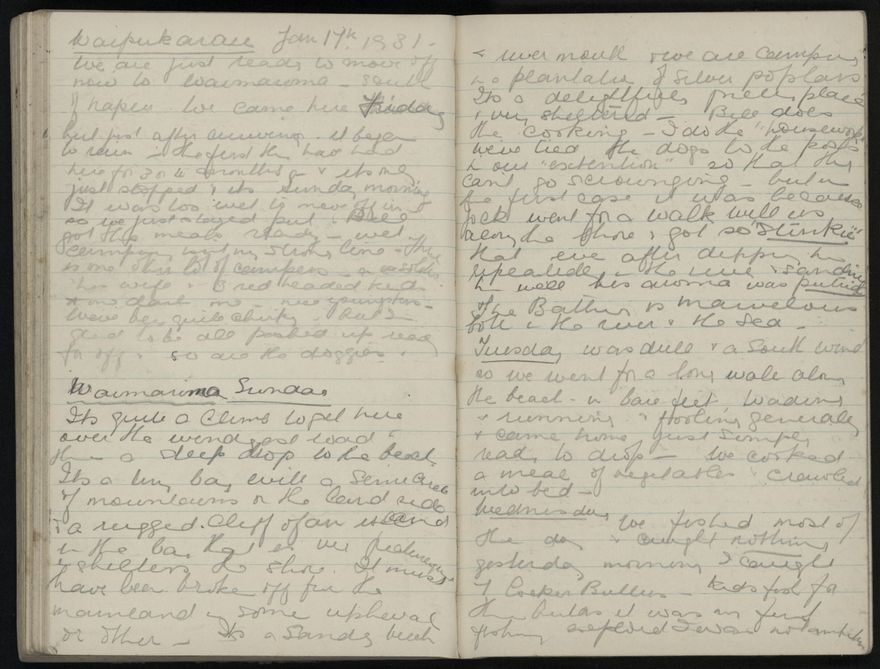 Waipukarau Jan 19th 1931.
We are just ready to move off
now to Waimarama - South
of Napier We came here Friday
but just after arriving it began
to rain - the first they had had
here for 3 or 4 months & its only
just stopped & its Sunday morning
It was too wet to move off in
so we just stayed put. Bill
got the meals ready - wet
camping isn't my strong line - There
is one other lot of campers - a
his wife & 3 red headed kids
& one dark one - nice youngsters
Weve been quite chirpy. But
glad to be all packed up ready
for off & so are the doggies.
Waimarama Sunday
Its quite a climb to get here
over the windgast road &
then a deep drop to the beach
Its a long bay with a semi circle
of mountains on the land side
& a rugged cliff of an island
in the bay that is very picturesque
& shelters the shore. It must
have been broke off from the
mainland in some upheaval
or other - Its a sandy beach
& river mouth & we are camping
in a plantation of silver poplars
Its a delightfully pretty place
& very sheltered - Bill does
the cooking - I do the "housework"
weve tied the dogs to the posts
in our "extention" so that they
cant go scrounging - but in
the first case it was because
Jock went for a walk with us
along the shore & got so "stinkie"
that even after dipping him
repeatedly in the river & sanding
him well his aroma was putrid
The Bathing is marvelous
both in the river & the sea -
Tuesday was dull & a South wind
so we went for a long walk along
the beach - in bare feet wading
& running & fooling generally
& came home just simply
ready to drop - We cooked
a meal of vegetables & crawled
into bed -
Wednesday We fished most of
the day & caught nothing
yesterday morning I caught
7 Cocker Bullies - kids fish for
them but as it was my first
fishing exploid I was not